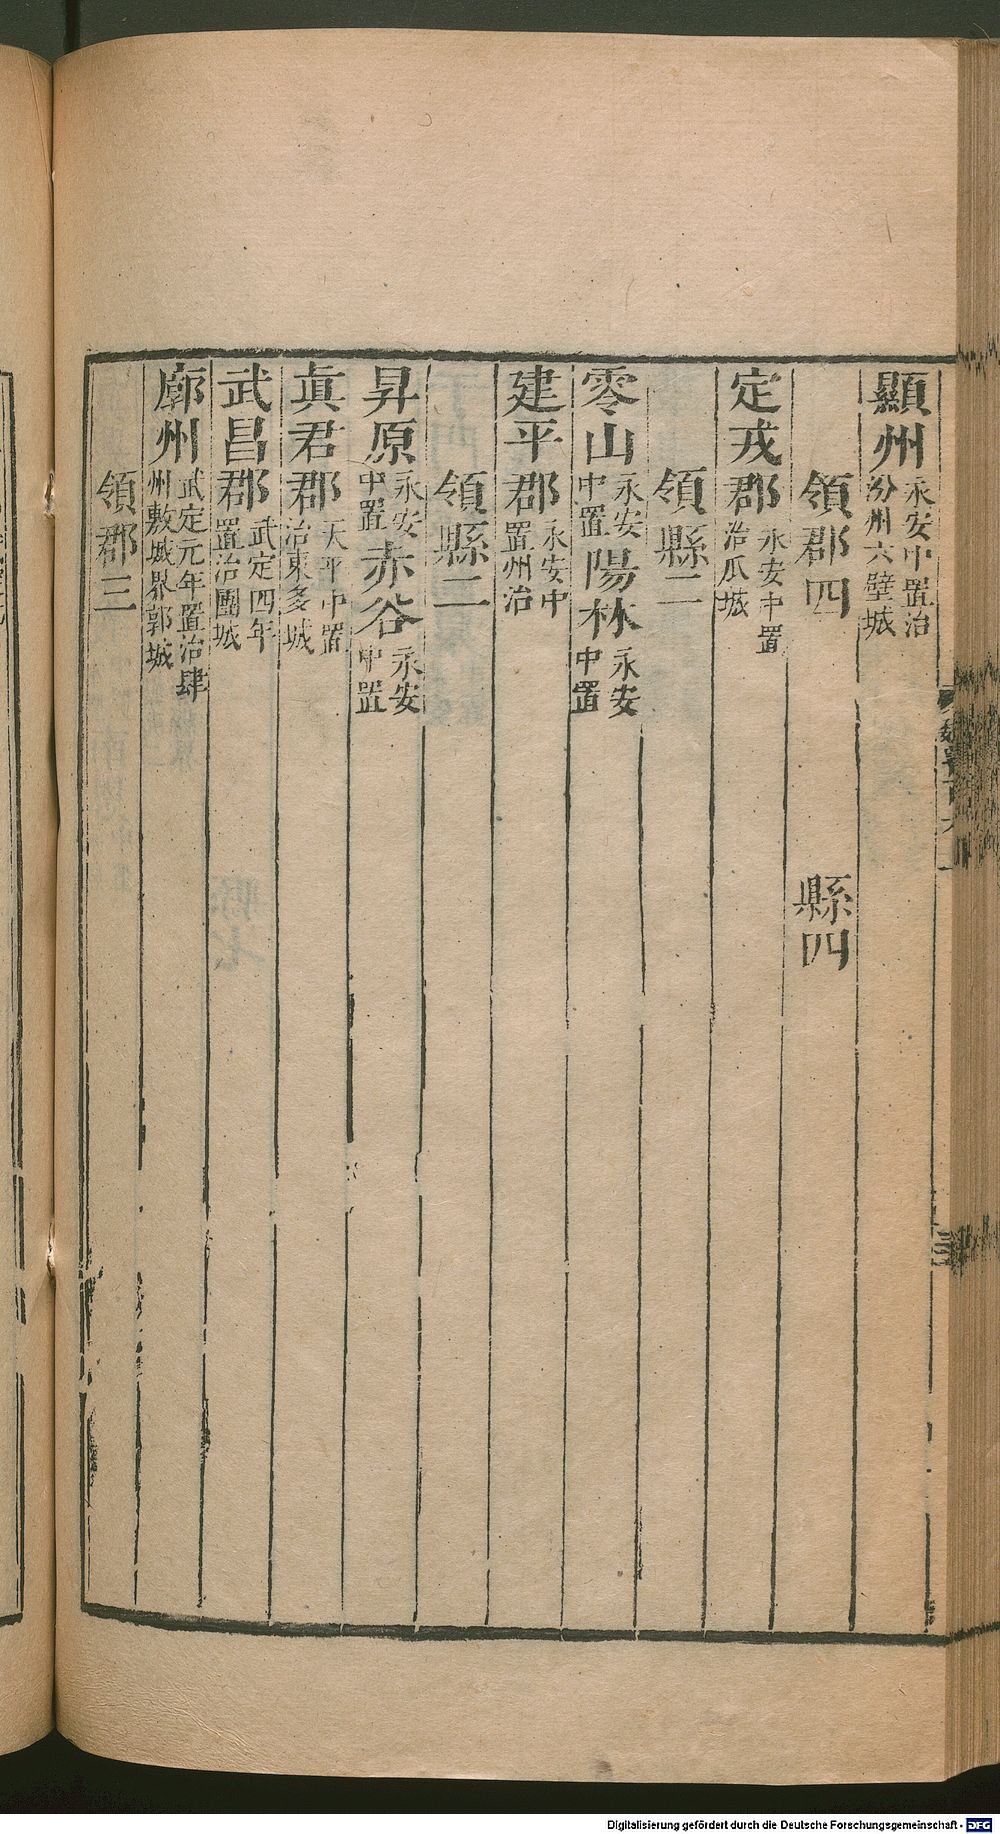 顯州永安中置治汾州六壁城
領郡四 縣四
定戎郡永安中置治瓜城
領縣二
零山永安中置陽林永安中置
建平郡永安中置州治
領縣二
昇原永安中置赤谷永安中置
眞君郡天平中置治東多城
武昌郡武定四年置治團城
廓州武定元年置治肆州敷城界郭城
領郡三
Digitalisierung gefördert durch die Deutsche Forschungsgemeinschaft - DFG